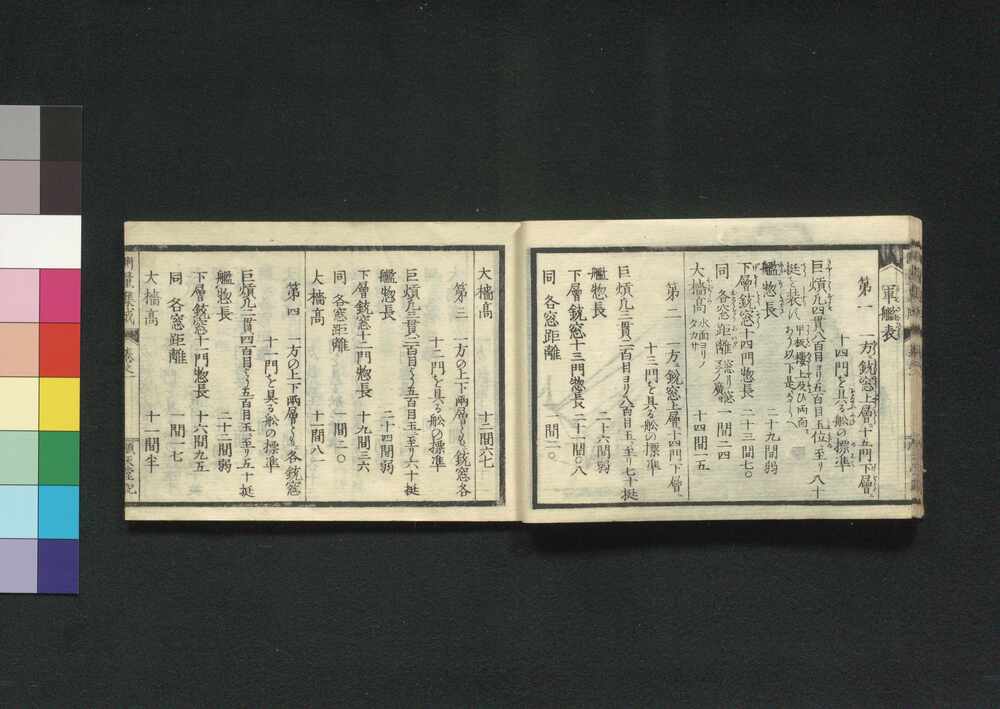 軍艦表
第一 一方ノ銃窓上層ニ十五門下層ニ
十四門を具る舩の標準
巨熕凡四貫八百目ヨリ五百目玉位ニ至り八十
挺を装ハ 甲板楼上及ひ両面
あり以下是ニ
艦惣長 二十九間弱
下層銃窓十四門惣長 二十三間七〇
同 各窓距離 一間二四
大檣高 水面ヨリノタカサ 十四間一五
第二 一方ニ銃窓上層十四門下層ニ
十三門を具る舩の標準
巨熕凡三貫二百目ヨリ八百目玉ニ至り七十挺
艦惣長 二十六間弱
下層銃窓十三門惣長 二十一間〇八
同 各窓距離 一間二〇
大檣高 十三間六七
第三 一方の上下両層ともニ銃窓各
十二門を具る舩の標凖
巨熕凡三貫二百目より五百目玉ニ至り六十挺
艦惣長 二十四間弱
下層銃窓十二門惣長 十九間三六
同 各窓距離 一間二〇
大檣高 十一間八
第四 一方の上下両層ともニ各銃窓
十一門を具る舩の標凖
巨熕凡二貫四百目より五百目玉ニ至り五十挺
艦惣長 二十二間弱
下層銃窓十一門惣長 十六間九五
同 各窓距離 一間一七
大檣高 十一間半